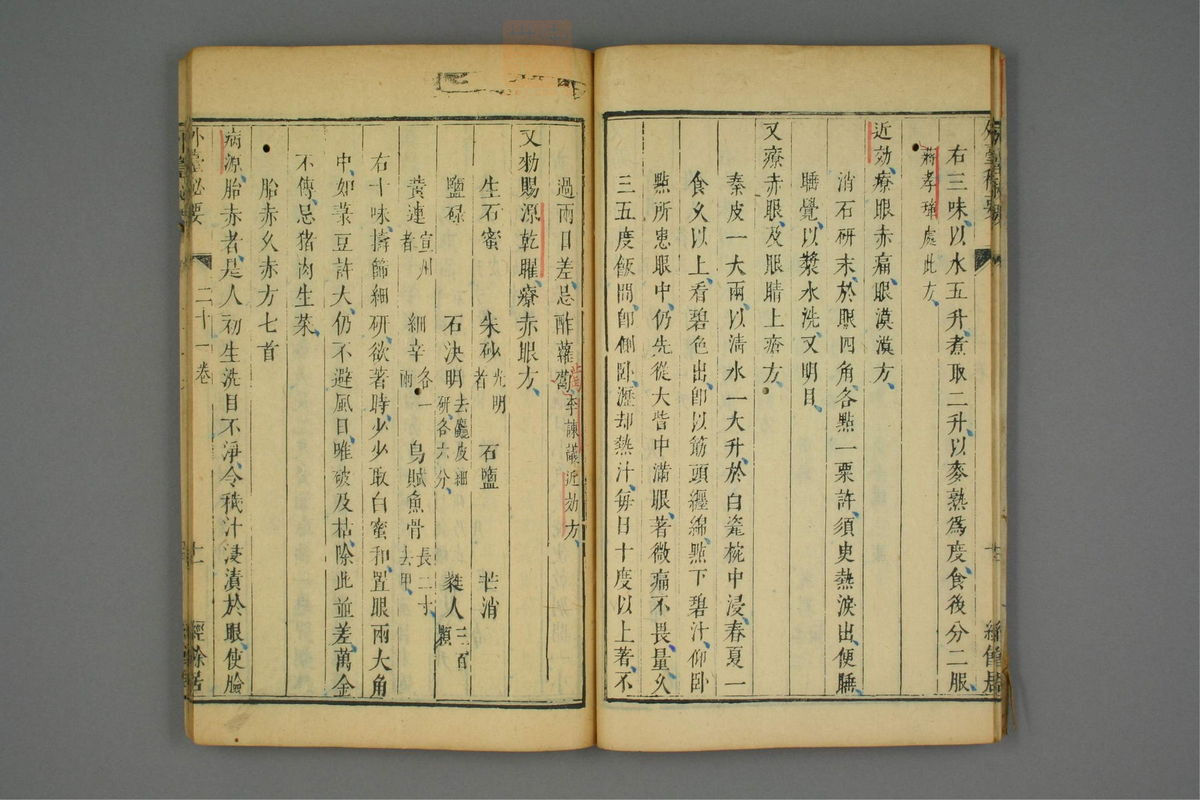 右三味以水五升煮取二升以麥熟爲度食後分二服
蔣孝璋處此方
近効療眼赤痛眼漠漠方
消石研末於眼四角各點一粟許須臾熱淚出便睡
睡覺以漿水洗又明目
又療赤眼及眼睛上瘡方
秦皮一大兩以清水一大升於白瓷椀中浸春夏一
食久以上看碧色出卽以筋頭纏綿點下碧汁仰臥
點所患眼中仍先從大眥中滿眼著微痛不畏量久
三五度飯間卽側臥瀝却熱汁每日十度以上著不
過兩日差忌酢蘿蔔李諫議近効方
又勑賜源乾曜療赤眼方
生石蜜 朱砂光明者 石鹽 芒消
鹽碌 石決明去麤皮細研各六分 蕤人三百顆
黃連宣州者 細辛各一兩 烏賊魚骨長二寸去甲
右十味擣篩細研欲著時少少取白蜜和置眼兩大角
中如菉豆許大仍不避風日唯破及枯除此並差萬金
不傳忌猪肉生菜
胎赤久赤方七首
病源胎赤者是人初生洗目不淨令穢汁浸漬於眼使臉
外臺祕要 二十一卷 十一 經餘居